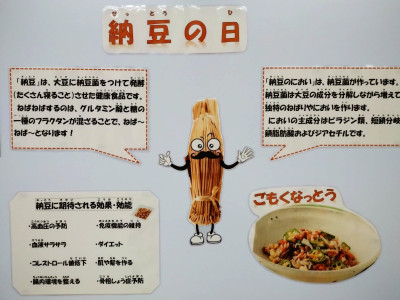 納豆の日
「納豆」は、大豆に納豆菌をつけて発酵
(たくさん寝ること)させた健康食品です。
ねばねばするのは、グルタミン酸と糖の
一種のフラクタンが混ざることで、ねば〜
ねば〜となります！
「納豆のにおい」は、納豆菌が作っています。
納豆菌は大豆の成分を分解しながら増えて
独特のねばりやにおいを作ります。
においの主成分はピラジン類、短鎖分岐
鎖脂肪酸およびジアセチルです。
納豆に期待される効果・効能
・高血圧の予防
・血液サラサラ
・コレストロール値低下
・腸内環境を整える
・免疫機能の維持
・ダイエット
・肌や髪を作る
・骨粗しょう症予防
ごもくなっとう